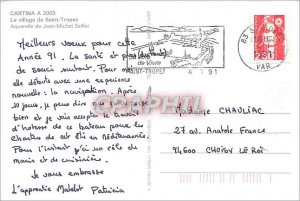 CARTINA A 2003
Le village de Saint-Tropez
Aquarelle de Jean-Michel Seiller
Meilleurs voeux pour cette
Année 91. La santé et pas
de souci surtout. Pour moi
elle débute avec une expérience
nouvelle : la navigation. Après
10 jours, je peux dire
bien et je vais accepter le travail
d'hotesse de ce bateau pour les
Charters de cet été en Méditerranée.
Pour l'instant j'ai un rôle de
marin et de cuisinière.
Je vous embrasse
L'apprentie Matelot Patricia
de vivre
SAINT-TROPEZ
4 1 91
83
VAR
Madame CHAULIAC
27 rue Anatole France
94600 CHOISY LE ROI
PICARTON